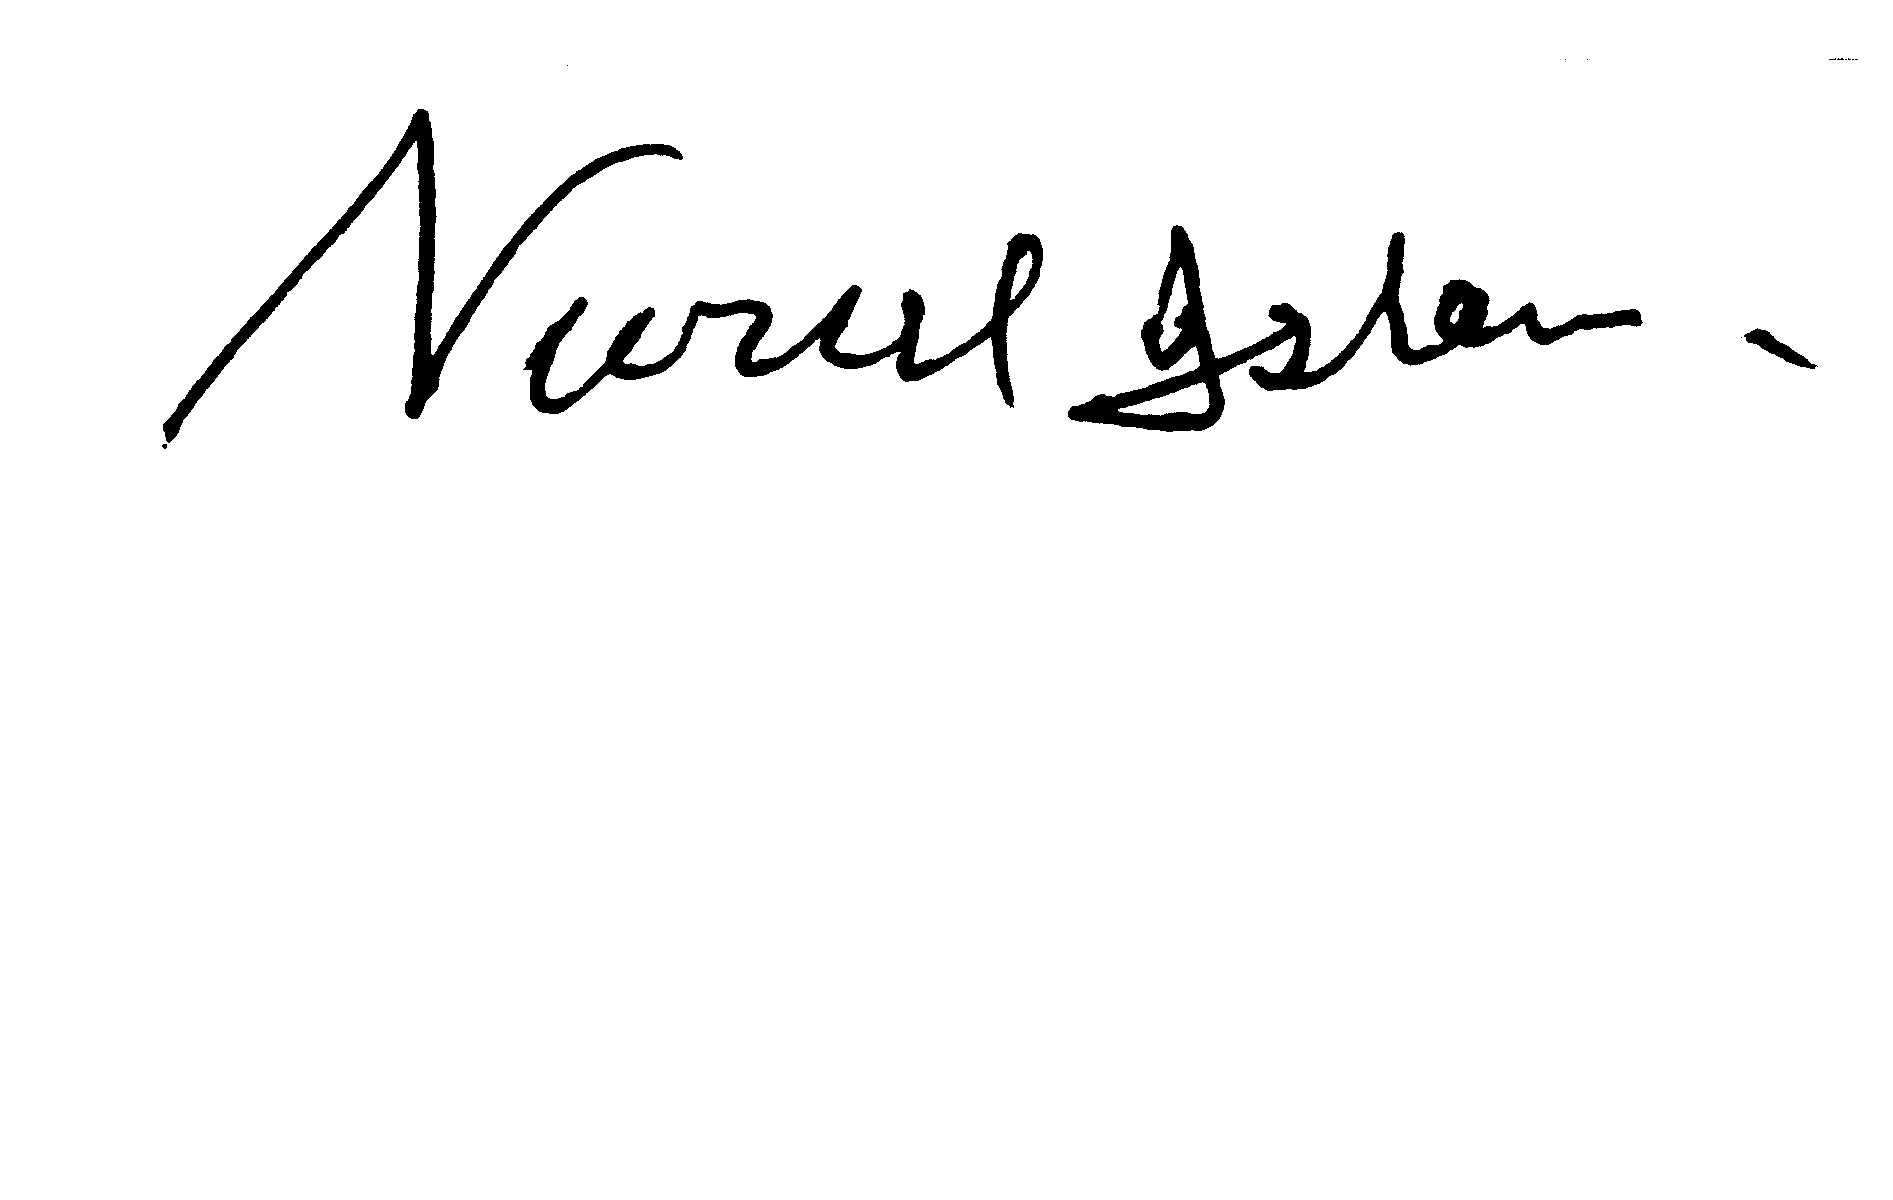 Nurul Islam